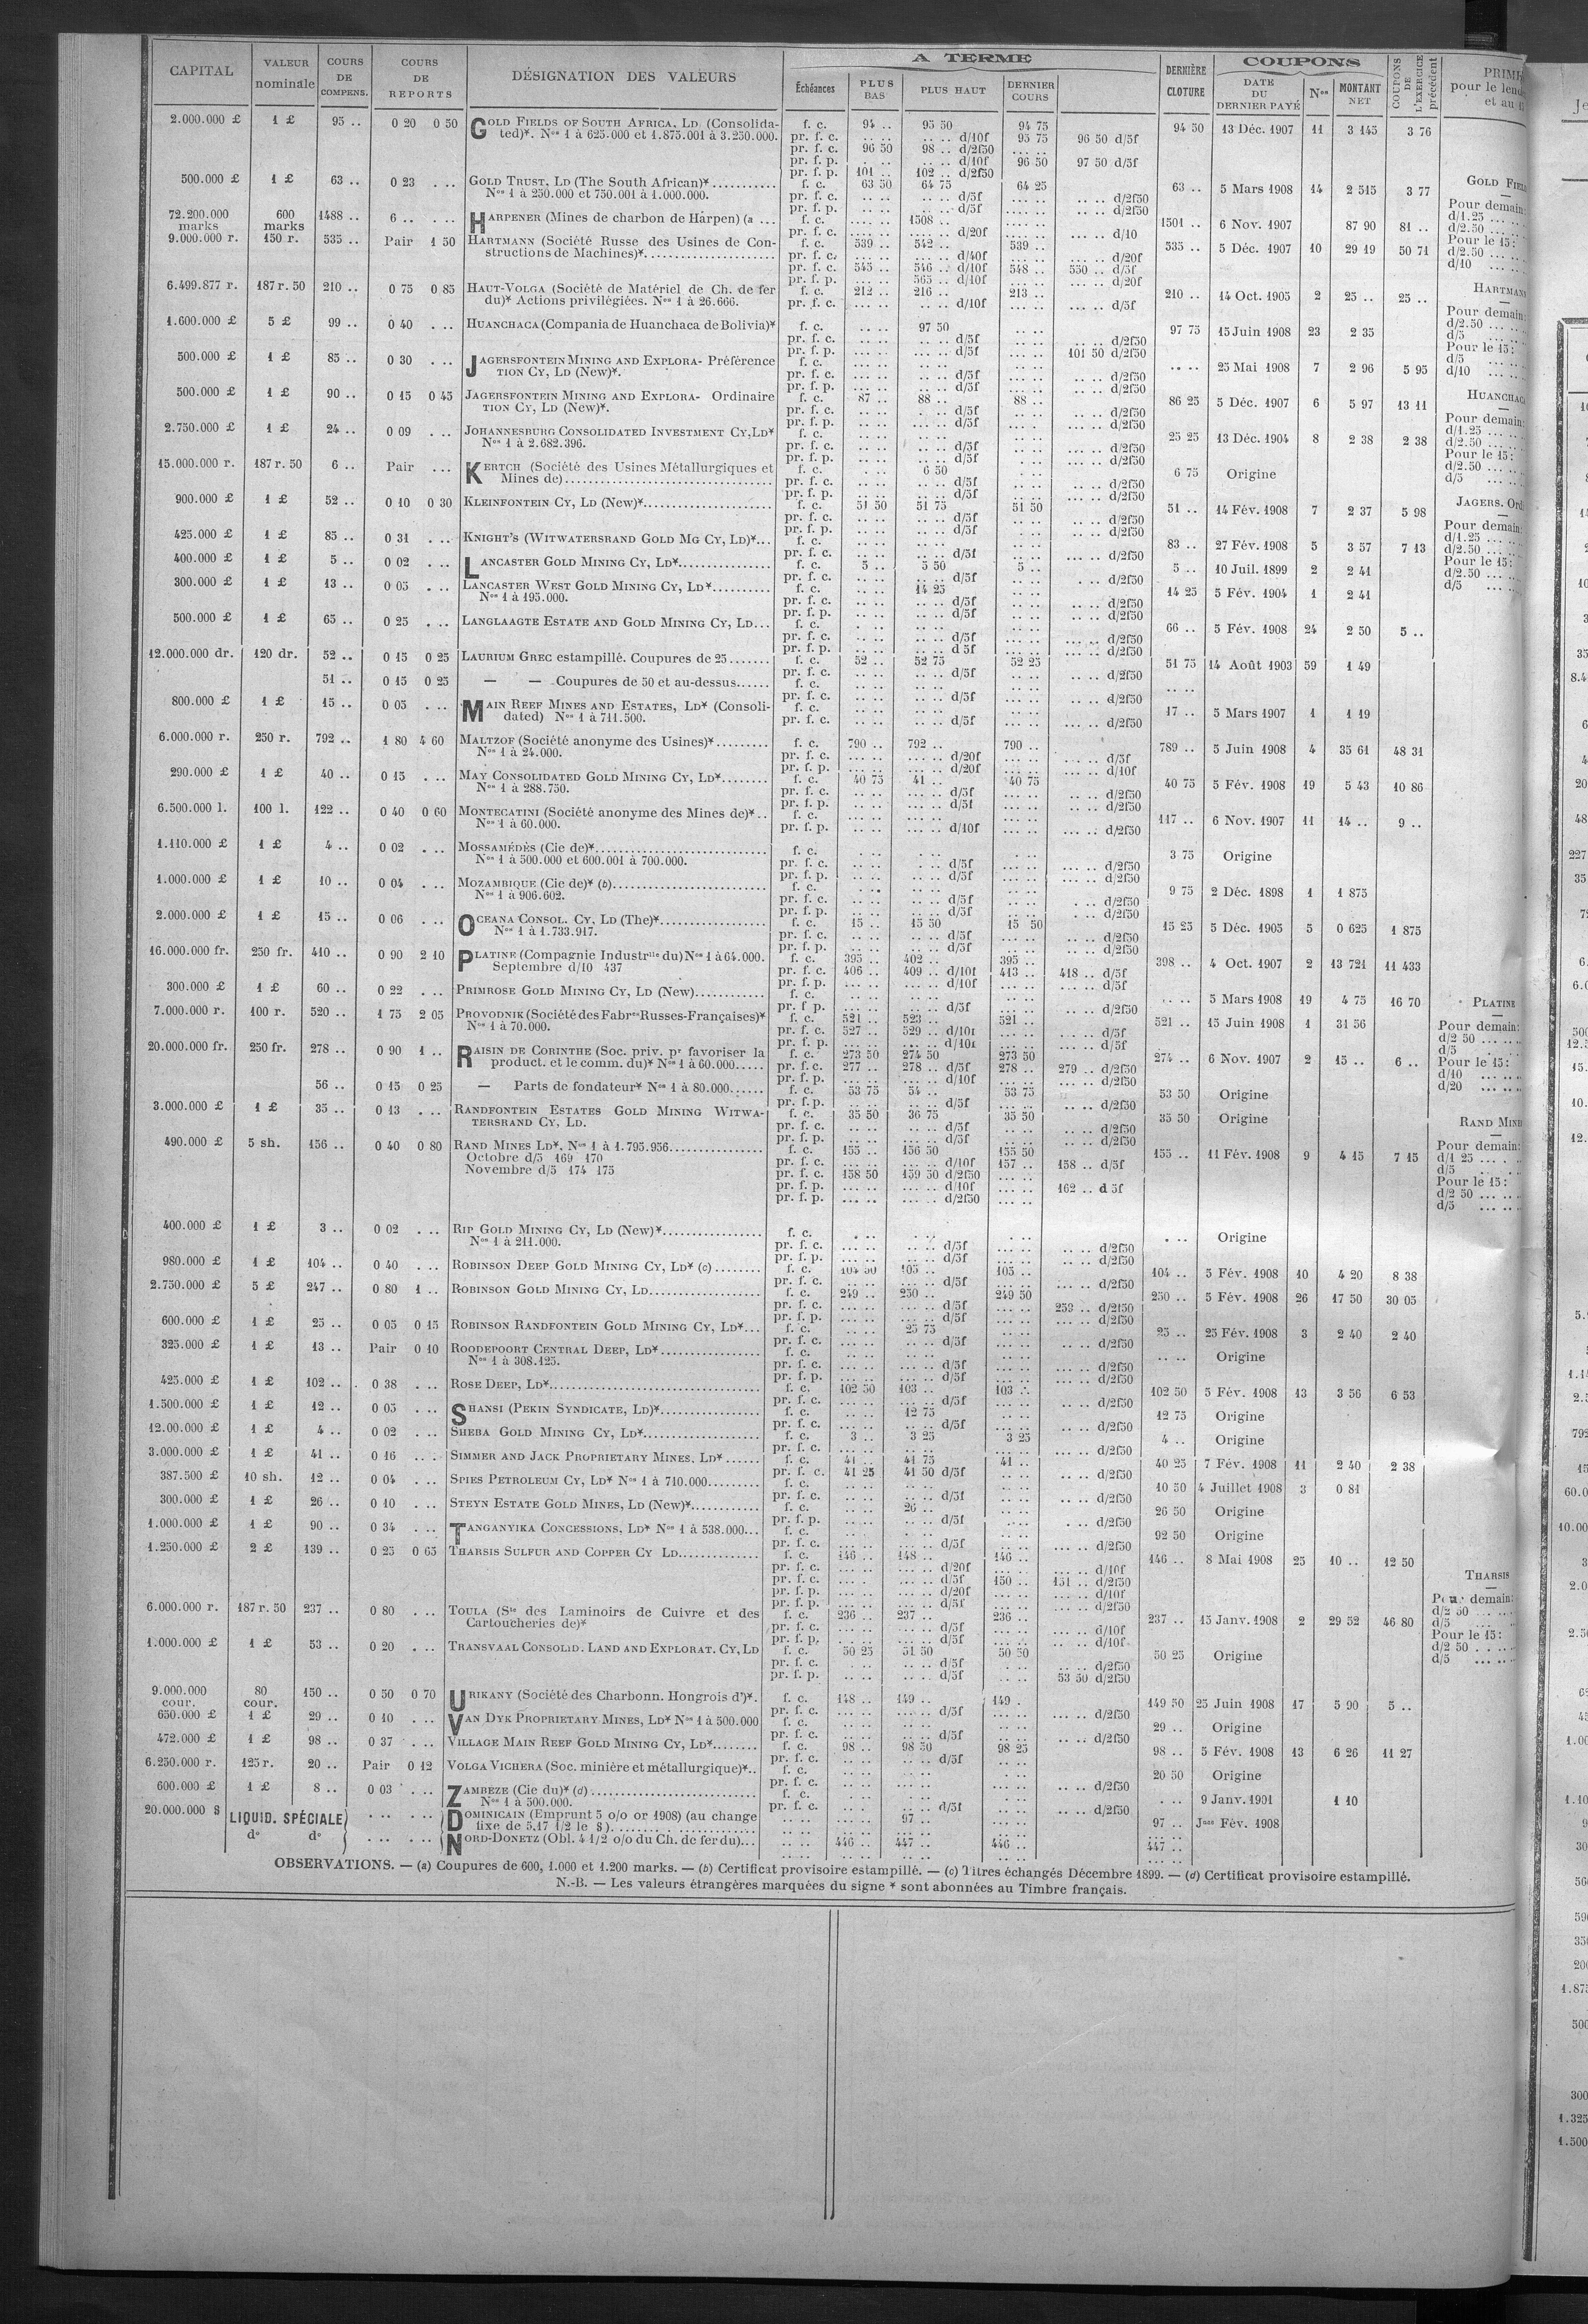 CAPITAL VALEUR nominale COURS DE COMPENS. COURS DE REPORTS DÉSIGNATION DES VALEURS A TERME Échéances PLUS BAS PLUS HAUT DERNIER COURS DERNIÈRE CLOTURE COUPONS DATE DU DERNIER PAYÉ Nos MONTANT NET COUPONS DE L'EXERCICE précédent
2.000.000 £ 1 £ 95 .. 0 20 0 50 GOLD FIELDS OF SOUTH AFRICA, LD (Consolida- f. c. 94 .. 95 50 94 75 94 50 13 Déc. 1907 11 3 145 3 76
ted)*. Nos 1 à 625.000 et 1.875.001 à 3.250.000. pr. f. c. .. .. .. .. d/10f 95 75 96 50 d/5f
pr. f. c. 96 50 98 .. d/2f50
pr. f. p. .. .. d/10f 96 50 97 50 d/5f
pr. f. p. 101 .. 102 .. d/2f50
500.000 £ 1 £ 63 .. 0 23 . .. GOLD TRUST, LD (The South African)* f. c. 63 50 64 75 64 25 63 .. 5 Mars 1908 14 2 515 3 77
Nos 1 à 250.000 et 750.001 à 1.000.000. pr. f. c. d/5f d/2f50
pr. f. p. d/5f d/2f50
72.200.000 marks 600 marks 1488 .. 6 .. . .. HARPENER (Mines de charbon de Harpen) (a ... f. c. 1508 .. 1501 .. 6 Nov. 1907 87 90 81 ..
pr. f. c. d/20f d/10
9.000.000 r. 150 r. 535 .. Pair 1 50 HARTMANN (Société Russe des Usines de Con- f. c. 539 .. 542 .. 539 .. 535 .. 5 Déc. 1907 10 29 19 50 71
structions de Machines)* pr. f. c. d/40f d/20f
pr. f. c. 545 .. 546 .. d/10f 548 .. 550 .. d/5f
pr. f. p. 565 .. d/10f d/20f
6.499.877 r. 187 r. 50 210 .. 0 75 0 85 HAUT-VOLGA (Société de Matériel de Ch. de fer f. c. 212 .. 216 .. 213 .. 210 .. 14 Oct. 1905 2 25 .. 25 ..
du)* Actions privilégiées. Nos 1 à 26.666. pr. f. c. d/10f d/5f
1.600.000 £ 5 £ 99 .. 0 40 . .. HUANCHACA (Compania de Huanchaca de Bolivia)* f. c. 97 50 97 75 15 Juin 1908 23 2 35
pr. f. c. d/5f d/2f50
pr. f. p. d/5f 101 50 d/2f50
500.000 £ 1 £ 85 .. 0 30 . .. JAGERSFONTEIN MINING AND EXPLORA- Préférence f. c. 25 Mai 1908 7 2 96 5 95
TION CY, LD (New)*. pr. f. c. d/5f d/2f50
pr. f. p. d/5f d/2f50
500.000 £ 1 £ 90 .. 0 15 0 45 JAGERSFONTEIN MINING AND EXPLORA- Ordinaire f. c. 87 .. 88 .. 88 .. 86 25 5 Déc. 1907 6 5 97 13 11
TION CY, LD (New)*. pr. f. c. d/5f d/2f50
pr. f. p. d/5f d/2f50
2.750.000 £ 1 £ 24 .. 0 09 . .. JOHANNESBURG CONSOLIDATED INVESTMENT CY, LD* f. c. 25 25 13 Déc. 1904 8 2 38 2 38
Nos 1 à 2.682.396. pr. f. c. d/5f d/2f50
pr. f. p. d/5f d/2f50
15.000.000 r. 187 r. 50 6 .. Pair . .. KERTCH (Société des Usines Métallurgiques et f. c. 6 50 6 75 Origine
Mines de) pr. f. c. d/5f d/2f50
pr. f. p. d/5f d/2f50
900.000 £ 1 £ 52 .. 0 10 0 30 KLEINFONTEIN CY, LD (New)* f. c. 51 50 51 75 51 50 51 .. 14 Fév. 1908 7 2 37 5 98
pr. f. c. d/5f d/2f50
pr. f. p. d/5f d/2f50
425.000 £ 1 £ 85 .. 0 31 . .. KNIGHT'S (WITWATERSRAND GOLD MG CY, LD)* f. c. 83 .. 27 Fév. 1908 5 3 57 7 13
pr. f. c. d/5f d/2f50
400.000 £ 1 £ 5 .. 0 02 . .. LANCASTER GOLD MINING CY, LD* f. c. 5 .. 5 50 5 .. 5 .. 10 Juil. 1899 2 2 41
pr. f. c. d/5f d/2f50
300.000 £ 1 £ 13 .. 0 05 . .. LANCASTER WEST GOLD MINING CY, LD* f. c. 14 25 14 25 5 Fév. 1904 1 2 41
Nos 1 à 195.000. pr. f. c. d/5f d/2f50
pr. f. p. d/5f d/2f50
500.000 £ 1 £ 65 .. 0 25 . .. LANGLAAGTE ESTATE AND GOLD MINING CY, LD f. c. 66 .. 5 Fév. 1908 24 2 50 5 ..
pr. f. c. d/5f d/2f50
pr. f. p. d 5f d/2f50
12.000.000 dr. 120 dr. 52 .. 0 15 0 25 LAURIUM GREC estampillé. Coupures de 25 f. c. 52 .. 52 75 52 25 51 75 14 Août 1903 59 1 49
pr. f. c. d/5f d/2f50
51 .. 0 15 0 25 — — Coupures de 50 et au-dessus f. c.
pr. f. c. d/5f d/2f50
800.000 £ 1 £ 15 .. 0 05 . .. MAIN REEF MINES AND ESTATES, LD* (Consoli- f. c. 17 .. 5 Mars 1907 1 1 19
dated) Nos 1 à 711.500. pr. f. c. d/5f d/2f50
6.000.000 r. 250 r. 792 .. 1 80 4 60 MALTZOF (Société anonyme des Usines)* f. c. 790 .. 792 .. 790 .. 789 .. 5 Juin 1908 4 35 61 48 31
Nos 1 à 24.000. pr. f. c. d/20f d/5f
pr. f. p. d/20f d/10f
290.000 £ 1 £ 40 .. 0 15 . .. MAY CONSOLIDATED GOLD MINING CY, LD* f. c. 40 75 41 .. 40 75 40 75 5 Fév. 1908 19 5 43 10 86
Nos 1 à 288.750. pr. f. c. d/5f d/2f50
pr. f. p. d/5f d/2f50
6.500.000 l. 100 l. 122 .. 0 40 0 60 MONTECATINI (Société anonyme des Mines de)* f. c. 117 .. 6 Nov. 1907 11 14 .. 9 ..
Nos 1 à 60.000. pr. f. p. d/10f d/2f50
1.110.000 £ 1 £ 4 .. 0 02 . .. MOSSAMÉDÈS (Cie de)* f. c. 3 75 Origine
Nos 1 à 500.000 et 600.001 à 700.000. pr. f. c. d/5f d/2f50
pr. f. p. d/5f d/2f50
1.000.000 £ 1 £ 10 .. 0 04 . .. MOZAMBIQUE (Cie de)* (b) f. c. 9 75 2 Déc. 1898 1 1 875
Nos 1 à 906.602. pr. f. c. d/5f d/2f50
pr. f. p. d/5f d/2f50
2.000.000 £ 1 £ 15 .. 0 06 . .. OCEANA CONSOL. CY, LD (The)* f. c. 15 .. 15 50 15 50 15 25 5 Déc. 1905 5 0 625 1 875
Nos 1 à 1.733.917. pr. f. c. d/5f d/2f50
pr. f. p. d/5f d/2f50
16.000.000 fr. 250 fr. 410 .. 0 90 2 10 PLATINE (Compagnie Industrlle du) Nos 1 à 64.000. f. c. 395 .. 402 .. 395 .. 398 .. 4 Oct. 1907 2 13 721 11 433
Septembre d/10 437 pr. f. c. 406 .. 409 .. d/10f 413 .. 418 .. d/5f
pr. f. p. d/10f d/5f
300.000 £ 1 £ 60 .. 0 22 . .. PRIMROSE GOLD MINING CY, LD (New) f. c. 5 Mars 1908 19 4 75 16 70
pr. f p. d/5f d/2f50
7.000.000 r. 100 r. 520 .. 1 75 2 05 PROVODNIK (Société des Fabres Russes-Françaises)* f. c. 521 .. 523 .. 521 .. 521 .. 15 Juin 1908 1 31 56
Nos 1 à 70.000. pr. f. c. 527 .. 529 .. d/10f d/5f
pr. f. p. d/10f d/5f
20.000.000 fr. 250 fr. 278 .. 0 90 1 .. RAISIN DE CORINTHE (Soc. priv. pr favoriser la f. c. 273 50 274 50 273 50 274 .. 6 Nov. 1907 2 15 .. 6 ..
product. et le comm. du)* Nos 1 à 60.000 pr. f. c. 277 .. 278 .. d/5f 278 .. 279 .. d/2f50
pr. f. p. d/10f d/2f50
56 .. 0 15 0 25 — Parts de fondateur* Nos 1 à 80.000 f. c. 53 75 54 .. 53 75 53 50 Origine
pr. f. p. d/5f d/2f50
3.000.000 £ 1 £ 35 .. 0 13 . .. RANDFONTEIN ESTATES GOLD MINING WITWA- f. c. 35 50 36 75 35 50 35 50 Origine
TERSRAND CY, LD. pr. f. c. d/5f d/2f50
pr. f. p. d/5f d/2f50
490.000 £ 5 sh. 156 .. 0 40 0 80 RAND MINES LD*. Nos 1 à 1.795.956 f. c. 155 .. 156 50 155 50 155 .. 11 Fév. 1908 9 4 15 7 15
Octobre d/5 169 170 pr. f. c. d/10f 157 .. 158 .. d/5f
Novembre d/5 174 175 pr. f. c. 158 50 159 50 d/2f50
pr. f. p. d/10f 162 .. d 5f
pr. f. p. d/2f50
400.000 £ 1 £ 3 .. 0 02 . .. RIP GOLD MINING CY, LD (New)* f. c. Origine
Nos 1 à 211.000. pr. f. c. d/5f d/2f50
pr. f. p. d/5f d/2f50
980.000 £ 1 £ 104 .. 0 40 . .. ROBINSON DEEP GOLD MINING CY, LD* (c) f. c. 104 50 105 .. 105 .. 104 .. 5 Fév. 1908 10 4 20 8 38
pr. f. c. d/5f d/2f50
2.750.000 £ 5 £ 247 .. 0 80 1 .. ROBINSON GOLD MINING CY, LD f. c. 249 .. 250 .. 249 50 250 .. 5 Fév. 1908 26 17 50 30 05
pr. f. c. d/5f 253 .. d/2f50
pr. f. p. d/5f d/2f50
600.000 £ 1 £ 25 .. 0 05 0 15 ROBINSON RANDFONTEIN GOLD MINING CY, LD* f. c. 25 75 25 .. 25 Fév. 1908 3 2 40 2 40
pr. f. c. d/5f d/2f50
325.000 £ 1 £ 13 .. Pair 0 10 ROODEPOORT CENTRAL DEEP, LD* f. c. Origine
Nos 1 à 308.125. pr. f. c. d/5f d/2f50
pr. f. p. d/5f d/2f50
425.000 £ 1 £ 102 .. 0 38 . .. ROSE DEEP, LD* f. c. 102 50 103 .. 103 .. 102 50 5 Fév. 1908 13 3 56 6 53
pr. f. c. d/5f d/2f50
1.500.000 £ 1 £ 12 .. 0 05 . .. SHANSI (PEKIN SYNDICATE, LD)* f. c. 12 75 12 75 Origine
pr. f. c. d/5f d/2f50
12.00.000 £ 1 £ 4 .. 0 02 . .. SHEBA GOLD MINING CY, LD* f. c. 3 .. 3 25 3 25 4 .. Origine
pr. f. c. d/2f50
3.000.000 £ 1 £ 41 .. 0 16 . .. SIMMER AND JACK PROPRIETARY MINES, LD* f. c. 41 .. 41 75 41 .. 40 25 7 Fév. 1908 11 2 40 2 38
pr. f. c. 41 25 41 50 d/5f d/2f50
387.500 £ 10 sh. 12 .. 0 04 . .. SPIES PETROLEUM CY, LD* Nos 1 à 710.000 f. c. 10 50 4 Juillet 1908 3 0 81
pr. f. c. d/5f d/2f50
300.000 £ 1 £ 26 .. 0 10 . .. STEYN ESTATE GOLD MINES, LD (New)* f. c. 26 .. 26 50 Origine
pr. f. p. d/5f d/2f50
1.000.000 £ 1 £ 90 .. 0 34 . .. TANGANYIKA CONCESSIONS, LD* Nos 1 à 538.000 f. c. 92 50 Origine
pr. f. c. d/5f d/2f50
1.250.000 £ 2 £ 139 .. 0 25 0 65 THARSIS SULFUR AND COPPER CY LD f. c. 146 .. 148 .. 146 .. 146 .. 8 Mai 1908 25 10 .. 12 50
pr. f. c. d/20f d/10f
pr. f. c. d/5f 150 .. 151 .. d/2f50
pr. f. p. d/20f d/10f
pr. f. p. d/5f d/2f50
6.000.000 r. 187 r. 50 237 .. 0 80 . .. TOULA (Sté des Laminoirs de Cuivre et des f. c. 236 .. 237 .. 236 .. 237 .. 15 Janv. 1908 2 29 52 46 80
Cartoucheries de)* pr. f. c. d/5f d/10f
pr. f. p. d/5f d/10f
1.000.000 £ 1 £ 53 .. 0 20 . .. TRANSVAAL CONSOLID. LAND AND EXPLORAT. CY, LD f. c. 50 25 51 50 50 50 50 25 Origine
pr. f. c. d/5f d/2f50
pr. f. p. d/5f 53 50 d/2f50
9.000.000 cour. 80 cour. 150 .. 0 50 0 70 URIKANY (Société des Charbonn. Hongrois d')*. f. c. 148 .. 149 .. 149 . 149 50 25 Juin 1908 17 5 90 5 ..
pr. f. c. d/5f d/2f50
650.000 £ 1 £ 29 .. 0 10 . .. VAN DYK PROPRIETARY MINES, LD* Nos 1 à 500.000 f. c. 29 .. Origine
pr. f. c. d/5f d/2f50
472.000 £ 1 £ 98 .. 0 37 . .. VILLAGE MAIN REEF GOLD MINING CY, LD* f. c. 98 .. 98 50 98 25 98 .. 5 Fév. 1908 13 6 26 11 27
pr. f. c. d/5f
6.250.000 r. 125 r. 20 .. Pair 0 12 VOLGA VICHERA (Soc. minière et métallurgique)* f. c. 20 50 Origine
pr. f. c. d/2f50
600.000 £ 1 £ 8 .. 0 03 . .. ZAMBÈZE (Cie du)* (d) f. c. 9 Janv. 1901 1 10
Nos 1 à 500.000. pr. f. c. d/5f d/2f50
20.000.000 $ LIQUID. SPÉCIALE DOMINICAIN (Emprunt 5 o/o or 1908) (au change 97 .. 97 .. Jce Fév. 1908
fixe de 5.17 1/2 le $)
do do NORD-DONETZ (Obl. 4 1/2 o/o du Ch. de fer du) 446 .. 447 .. 446 .. 447 ..
OBSERVATIONS. — (a) Coupures de 600, 1.000 et 1.200 marks. — (b) Certificat provisoire estampillé. — (c) Titres échangés Décembre 1899. — (d) Certificat provisoire estampillé.
N.-B. — Les valeurs étrangères marquées du signe * sont abonnées au Timbre français.
Pour demain:
d/1.25
d/2.50
Pour le 15:
d/2.50
d/10
Pour demain:
d/2.50
d/5
Pour le 15:
d/5
d/10
Pour demain:
d/1.25
d/2.50
Pour le 15:
d/2.50
d/5
Pour demain:
d/1.25
d/2.50
Pour le 15:
d/2.50
d/5
PLATINE
Pour demain:
d/2 50
d/5
Pour le 15:
d/10
d/20
Pour demain:
d/1 25
d/5
Pour le 15:
d/2 50
d/5
THARSIS
Pour demain:
d/2 50
d/5
Pour le 15:
d/2 50
d/5